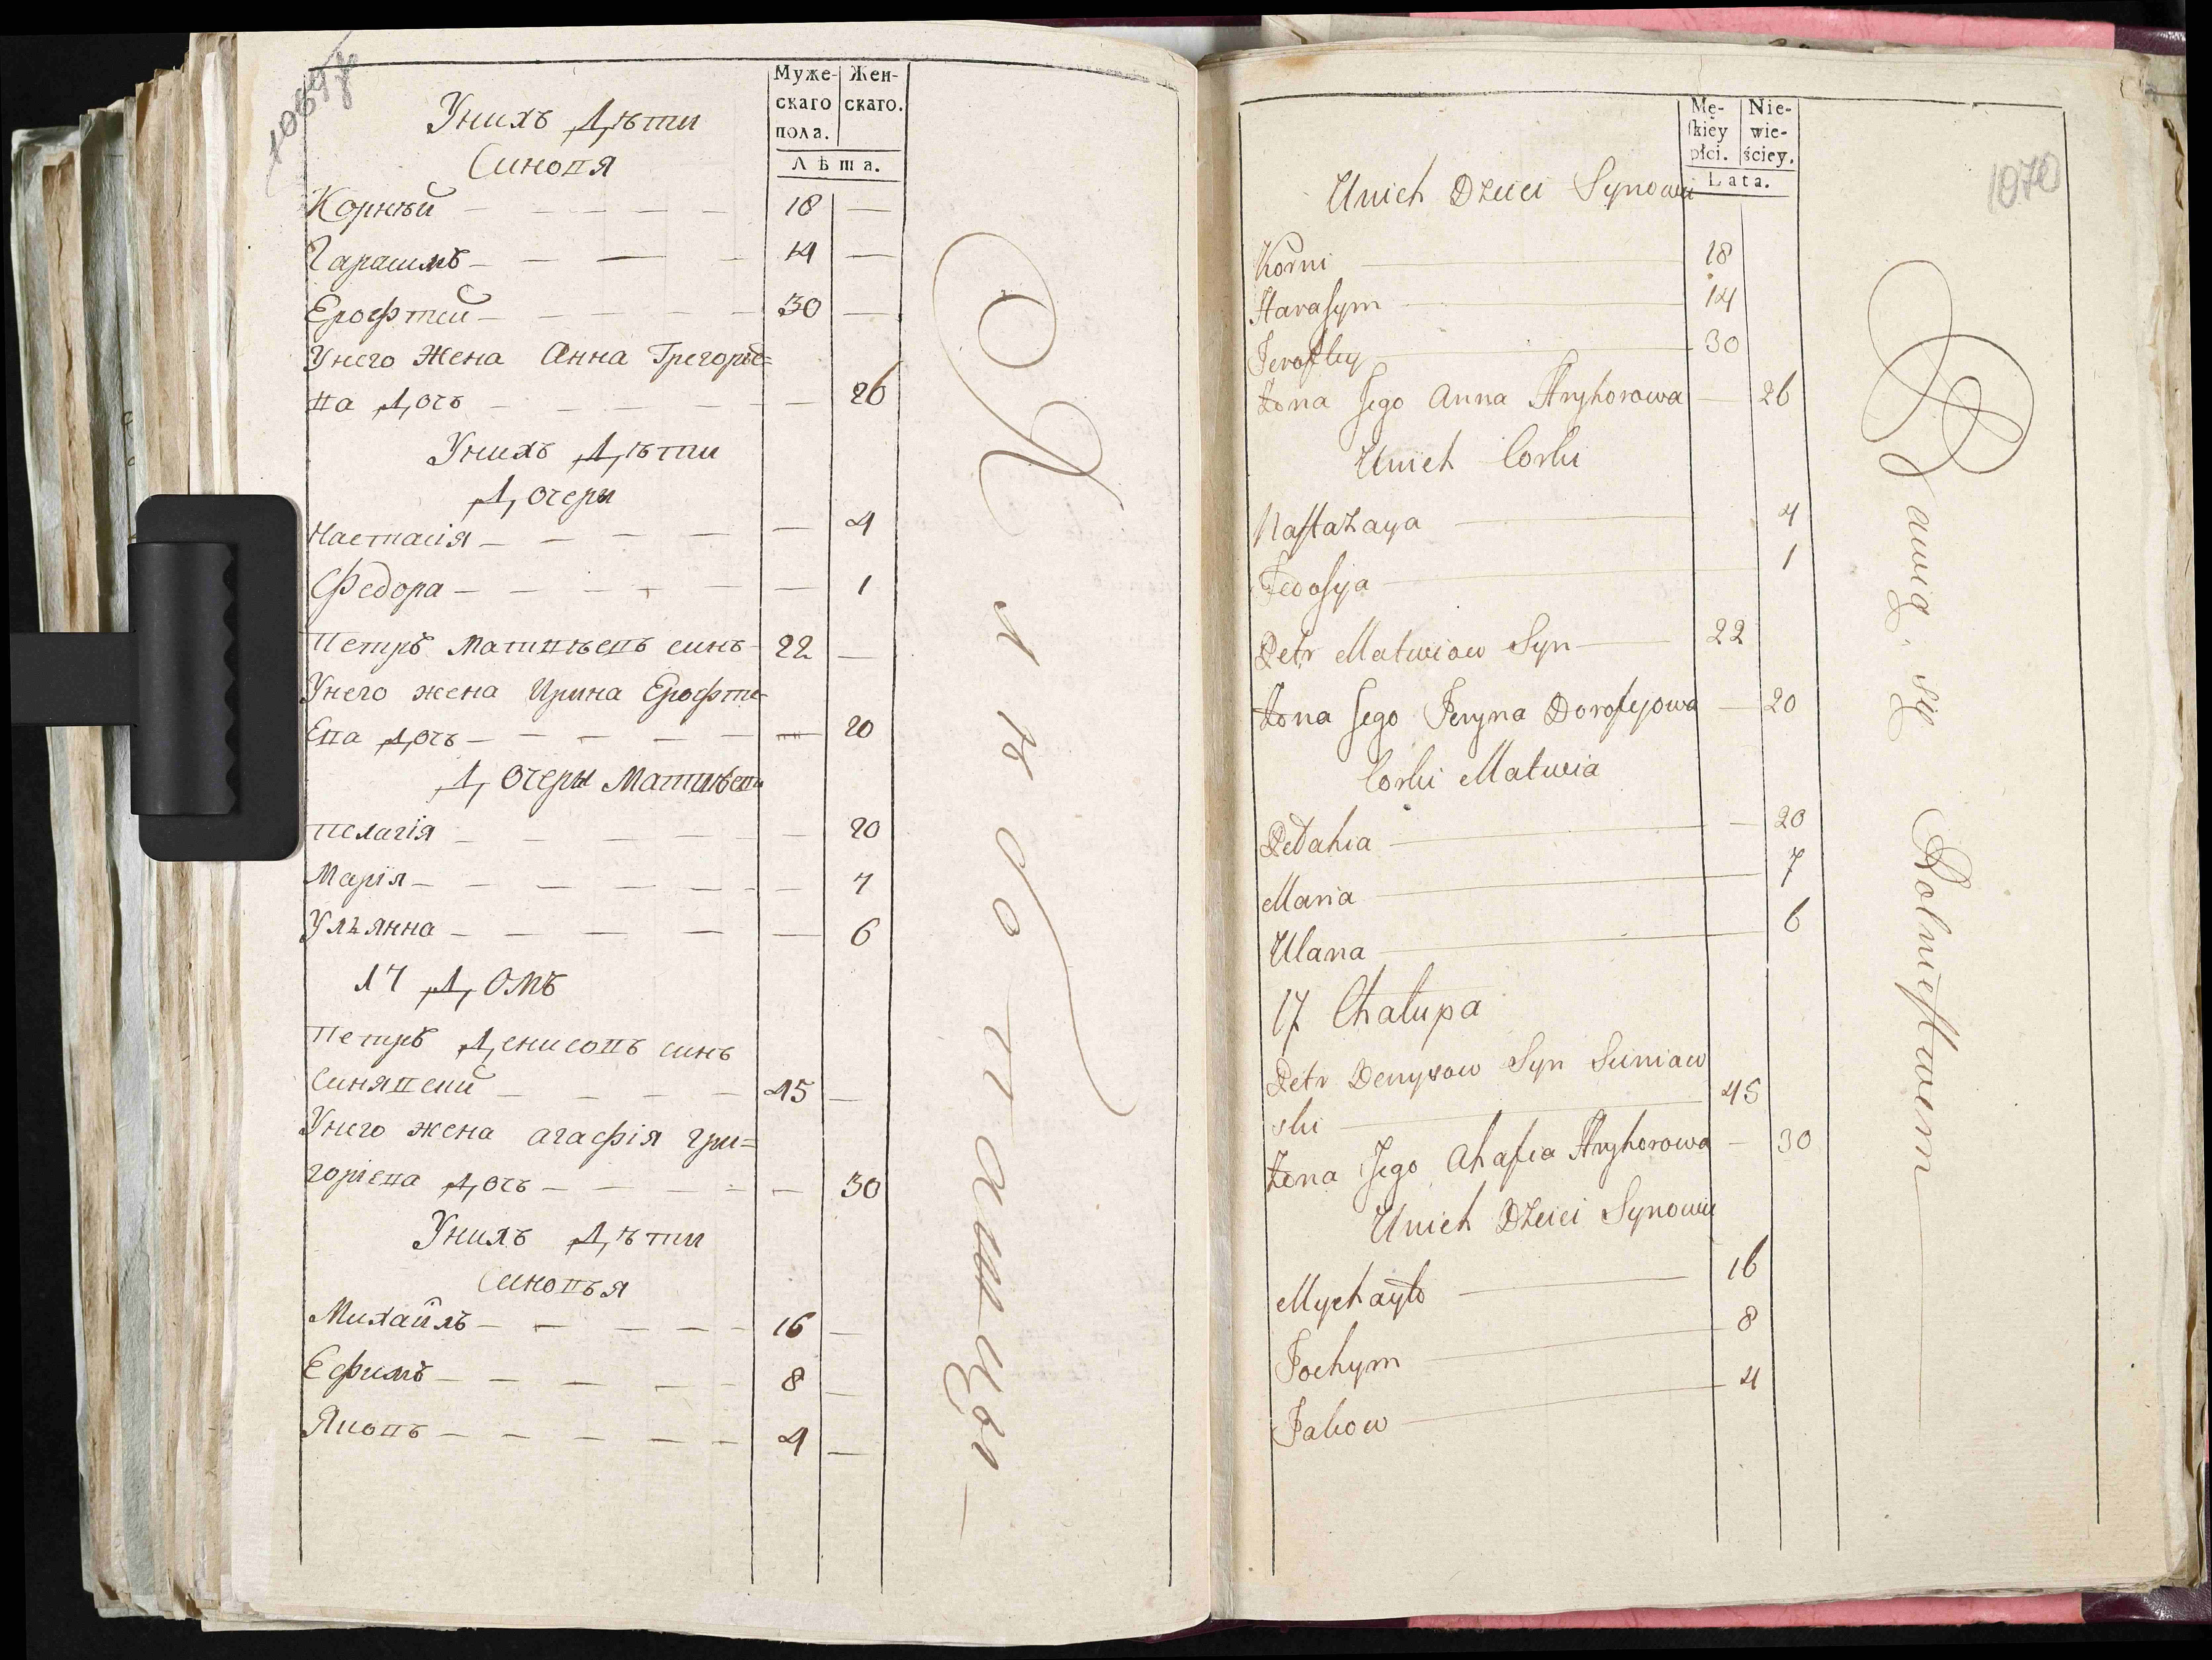 Муже- Жен-
скаго скаго.
пола.
Лѣта.
Унихъ Дѣти
Синовя
Корнѣй 18
Гарасимъ 14
Ерофтей 30
Унего Жена Анна Грегорье=
ва Дочъ 26
Унихъ Дѣти
Дочеры
Настасія 4
Федора 1
Петръ Матвѣевъ синъ 22
Унего жена Ирина Ерофте=
Ева Дочъ 20
Дочеры Матвѣеви
Пелагія 20
Марія 7
Ульянна 6
17 Домъ
Петръ Денисовъ синъ
Синявский 45
Унего жена агафія гри=
горіева Дочъ 30
Унихъ Дѣти
Синовъя
Михайлъ 16
Ефимъ 8
Яковъ 4
Хлѣбопашцы
Mę- Nie-
skiey wie-
płci. ściey.
Lata.
1070
Unich Dzieci Synowie
Korni 18
Harasym 14
Jerofley 30
Żona Jego Anna Hryhorowa 26
Unich Corki
Nastazaya 4
Fedosya 1
Petr Matwiow Syn 22
Żona Jego Jeryna Dorofejowa 20
Corki Matwia
Pełahia 20
Maria 7
Ulana 6
17 Chałupa
Petr Denysow Syn Siniaw
ski 45
Żona Jego Ahafia Hryhorowa 30
Unich Dzieci Synowie
Mychayło 16
Jochym 8
Jakow 4
Bawią się Rolnictwem